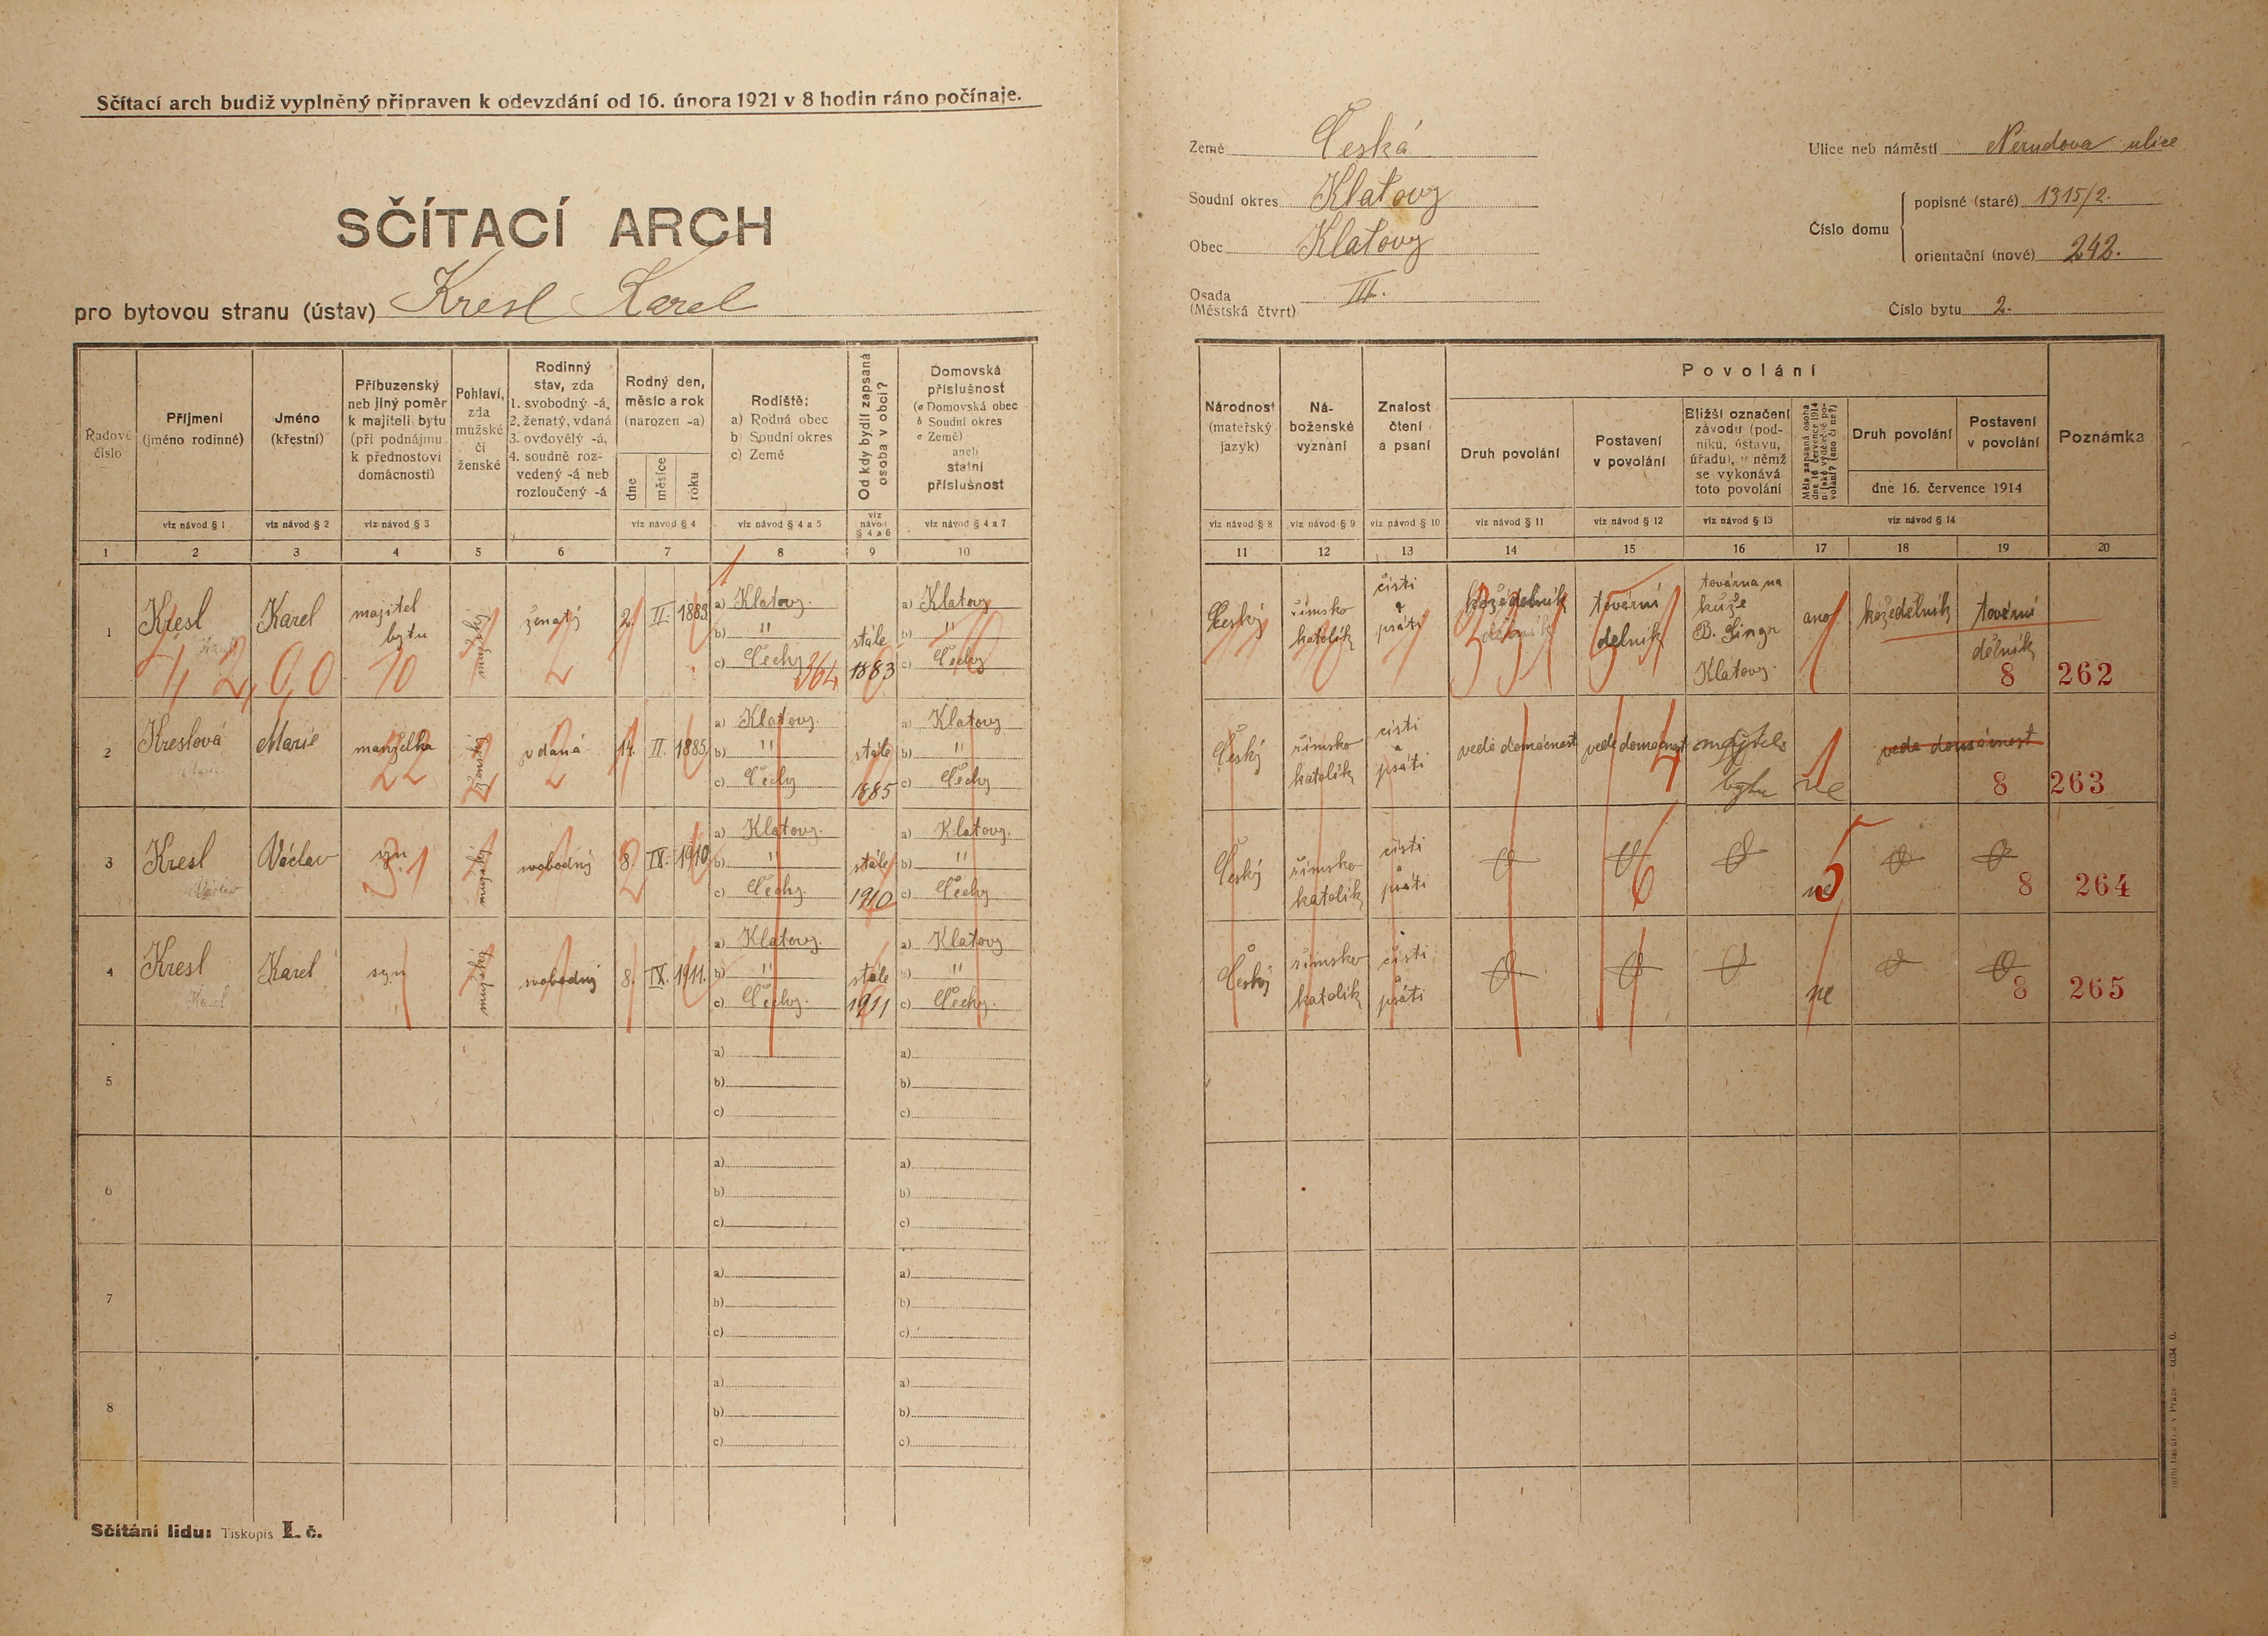 Sčítací arch budiž vyplněný připraven k odevzdání od 16. února 1921 v 8 hodin ráno počínaje.
SČÍTACÍ ARCH
pro bytovou stranu (ústav) Kresl Karel
Země Česká
Soudní okres Klatovy
Obec Klatovy
Osada (Městská čtvrt) III.
Ulice neb náměstí Nerudova ulice
Číslo domu
popisné (staré) 1315/2.
orientační (nové) 242.
Číslo bytu 2.
Řadové číslo
Příjmení (jméno rodinné)
Jméno (křestní)
Příbuzenský neb jiný poměr k majiteli bytu (při podnájmu k přednostovi domácnosti)
Pohlaví, zda mužské či ženské
Rodinný stav, zda 1. svobodný -á, 2. ženatý, vdaná 3. ovdovělý -á, 4. soudně rozvedený -á neb rozloučený -á
Rodný den, měsíc a rok (narozen -a)
dne měsíce roku
Rodiště:
a) Rodná obec
b) Soudní okres
c) Země
Od kdy bydlí zapsaná osoba v obci?
Domovská příslušnost
(a Domovská obec
b Soudní okres
c Země)
aneb
státní příslušnost
viz návod § 1 viz návod § 2 viz návod § 3 viz návod § 4 viz návod § 4 a 5 viz návod § 4 a 6 viz návod § 4 a 7
1 2 3 4 5 6 7 8 9 10
Národnost (mateřský jazyk)
Náboženské vyznání
Znalost čtení a psaní
Povolání
Druh povolání
Postavení v povolání
Bližší označení závodu (podniku, ústavu, úřadu), v němž se vykonává toto povolání
Měla zapsaná osoba dne 16. července 1914 nějaké výdělečné povolání? (ano či ne?)
Druh povolání
Postavení v povolání
dne 16. července 1914
Poznámka
viz návod § 8 viz návod § 9 viz návod § 10 viz návod § 11 viz návod § 12 viz návod § 13 viz návod § 14
11 12 13 14 15 16 17 18 19 20
1 Kresl Karel majitel bytu mužské ženatý 2. II. 1883 a) Klatovy. b) " c) Čechy 364 stále 1883 a) Klatovy b) " c) Čechy
4, 2, 0, 0 10
Český římsko katolík čísti a psáti kožedělník tovární dělník továrna na kůže B. Singr Klatovy. ano kožedělník tovární dělník 8 262
2 Kreslová Marie manželka ženské vdaná 14. II. 1885 a) Klatovy. b) " c) Čechy stále 1885 a) Klatovy b) " c) Čechy
Český římsko katolík čísti a psáti vede domácnost vede domácnost majitel bytu ne vede domácnost 8 263
3 Kresl Václav syn mužské svobodný 8. IX. 1910 a) Klatovy. b) " c) Čechy. stále 1910 a) Klatovy. b) " c) Čechy.
Český římsko katolík čísti a psáti ne 8 264
4 Kresl Karel syn mužské svobodný 8. IX. 1911. a) Klatovy. b) " c) Čechy. stále 1911 a) Klatovy b) " c) Čechy.
Český římsko katolík čísti a psáti ne 8 265
5 a) b) c) a) b) c)
6 a) b) c) a) b) c)
7 a) b) c) a) b) c)
8 a) b) c) a) b) c)
Sčítání lidu: Tiskopis I. č.